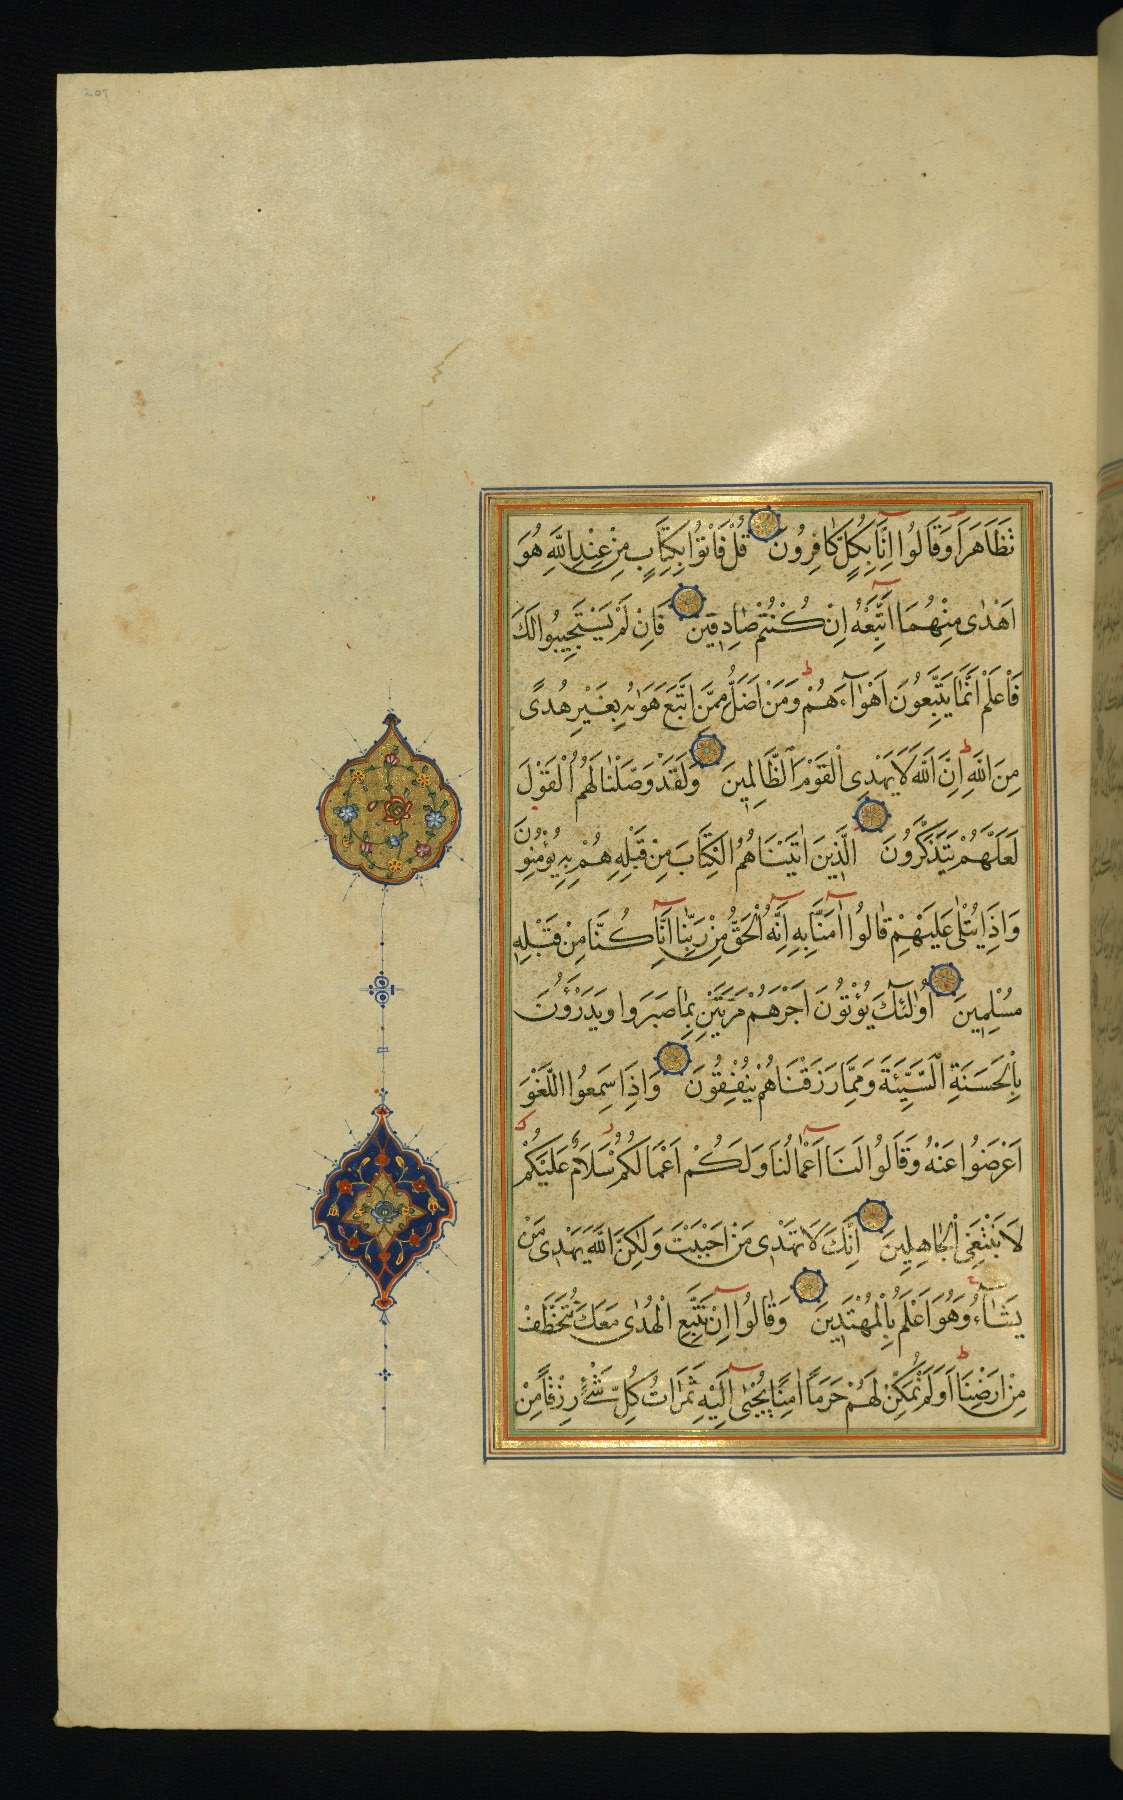 تَظَاهَرَا وَقَالُوا اِنَّا بِكُلٍّ كَافِرُونَ قُلْ فَأْتُوا بِكِتَابٍ مِنْ عِنْدِ اللّٰهِ هُوَ
اَهْدٰى مِنْهُمَا اَتَّبِعْهُ اِنْ كُنْتُمْ صَادِقِينَ فَاِنْ لَمْ يَسْتَجِيبُوا لَكَ
فَاعْلَمْ اَنَّمَا يَتَّبِعُونَ اَهْوَآءَهُمْ وَمَنْ اَضَلُّ مِمَّنِ اتَّبَعَ هَوٰيهُ بِغَيْرِ هُدًى
مِنَ اللّٰهِ اِنَّ اللّٰهَ لَا يَهْدِى الْقَوْمَ الظَّالِمِينَ وَلَقَدْ وَصَّلْنَا لَهُمُ الْقَوْلَ
لَعَلَّهُمْ يَتَذَكَّرُونَ اَلَّذِينَ اٰتَيْنَاهُمُ الْكِتَابَ مِنْ قَبْلِهِ هُمْ بِهِ يُؤْمِنُونَ
وَاِذَا يُتْلٰى عَلَيْهِمْ قَالُوا اٰمَنَّا بِهِ اِنَّهُ الْحَقُّ مِنْ رَبِّنَا اِنَّا كُنَّا مِنْ قَبْلِهِ
مُسْلِمِينَ اُولٰئِكَ يُؤْتَوْنَ اَجْرَهُمْ مَرَّتَيْنِ بِمَا صَبَرُوا وَيَدْرَؤُنَ
بِالْحَسَنَةِ السَّيِّئَةَ وَمِمَّا رَزَقْنَاهُمْ يُنْفِقُونَ وَاِذَا سَمِعُوا اللَّغْوَ
اَعْرَضُوا عَنْهُ وَقَالُوا لَنَا اَعْمَالُنَا وَلَكُمْ اَعْمَالُكُمْ سَلَامٌ عَلَيْكُمْ
لَا نَبْتَغِى الْجَاهِلِينَ اِنَّكَ لَا تَهْدِى مَنْ اَحْبَبْتَ وَلٰكِنَّ اللّٰهَ يَهْدِى مَنْ
يَشَآءُ وَهُوَ اَعْلَمُ بِالْمُهْتَدِينَ وَقَالُوا اِنْ نَتَّبِعِ الْهُدٰى مَعَكَ نُتَخَطَّفْ
مِنْ اَرْضِنَا اَوَلَمْ نُمَكِّنْ لَهُمْ حَرَمًا اٰمِنًا يُجْبٰى اِلَيْهِ ثَمَرَاتُ كُلِّ شَيْءٍ رِزْقًا مِنْ